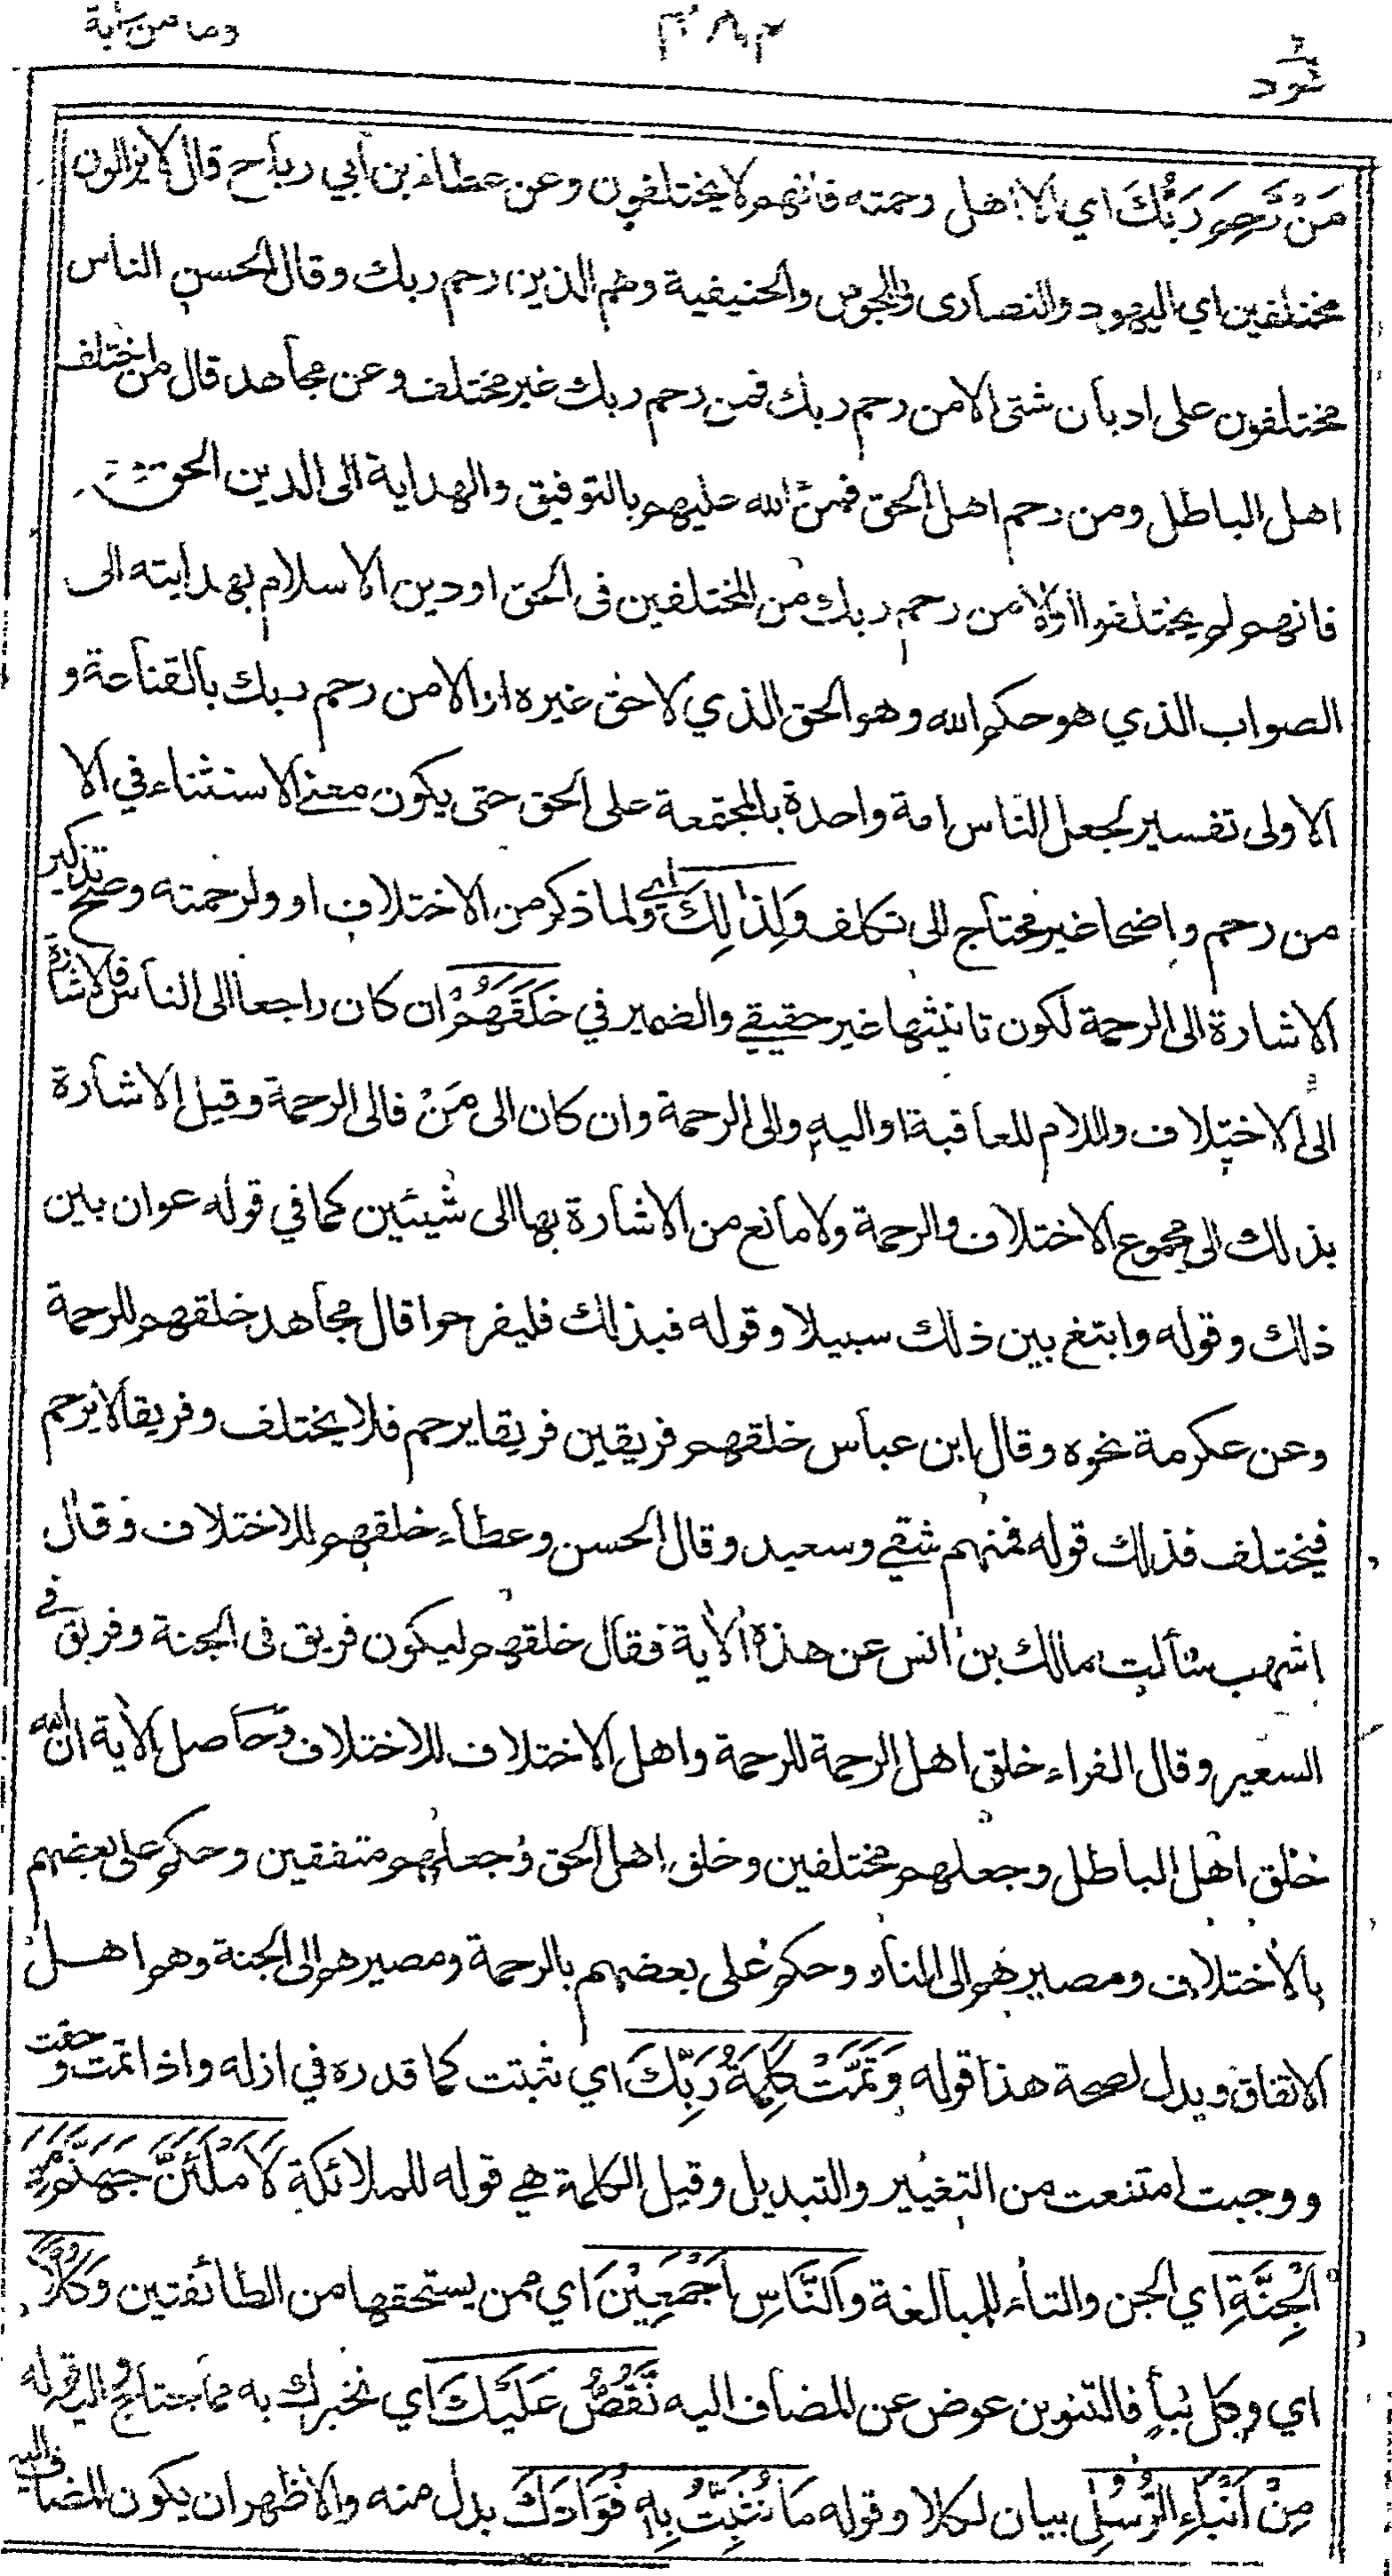 وما من دابة
٣٨٢
هود
مَنْ رَّحِمَ رَبُّكَ اي الا اهل رحمته فانهم لا يختلفون وعن عطاء بن أبي رباح قال لا يزالون
مختلفين اي اليهود والنصارى والمجوس والحنيفية وهم الذين رحم ربك وقال الحسن الناس
مختلفون على اديان شتى الا من رحم ربك فمن رحم ربك غير مختلف وعن مجاهد قال من اختلف
اهل الباطل ومن رحم اهل الحق فمنّ الله عليهم بالتوفيق والهداية الى الدين الحق
فانهم لم يختلفوا او الا من رحم ربك من المختلفين فى الحق او دين الاسلام بهدايته الى
الصواب الذي هو حكم الله وهو الحق الذي لا حق غيره او الا من رحم ربك بالقناعة و
الاولى تفسير لجعل الناس امة واحدة بالمجتمعة على الحق حتى يكون معنى الاستثناء في الا
من رحم واضحا غير محتاج الى تكلف وَلِذٰلِكَ اي ولما ذكر من الاختلاف او ولرحمته وصح تذكير
الاشارة الى الرحمة لكون تانيثها غير حقيقي والضمير في خَلَقَهُمْ ان كان راجعا الى الناس فالاشارة
الى الاختلاف واللام للعاقبة او اليه والى الرحمة وان كان الى مَنْ فالى الرحمة وقيل الاشارة
بذلك الى مجموع الاختلاف والرحمة ولا مانع من الاشارة بها الى شيئين كما في قوله عوان بين
ذلك وقوله وابتغ بين ذلك سبيلا وقوله فبذلك فليفرحوا قال مجاهد خلقهم للرحمة
وعن عكرمة نحوه وقال ابن عباس خلقهم فريقين فريقا يرحم فلا يختلف وفريقا لا يرحم
فيختلف فذلك قوله فمنهم شقي وسعيد وقال الحسن وعطاء خلقهم للاختلاف وقال
اشهب سألت مالك بن انس عن هذه الأية فقال خلقهم ليكون فريق فى الجنة وفريق في
السعير وقال الفراء خلق اهل الرحمة للرحمة واهل الاختلاف للاختلاف وحاصل الأية ان الله
خلق اهل الباطل وجعلهم مختلفين وخلق اهل الحق وجعلهم متفقين وحكم على بعضهم
بالاختلاف ومصيرهم الى النار وحكم على بعضهم بالرحمة ومصيرهم الى الجنة وهم اهل
الاتفاق ويدل لصحة هذا قوله وَتَمَّتْ كَلِمَةُ رَبِّكَ اي ثبتت كما قدره في ازله واذا تمت وحقت
ووجبت امتنعت من التغيير والتبديل وقيل الكلمة هي قوله للملائكة لَاَمْلَئَنَّ جَهَنَّمَ مِنَ
الْجِنَّةِ اي الجن والتاء للمبالغة وَالنَّاسِ اَجْمَعِيْنَ اي ممن يستحقها من الطائفتين وَكُلًّا
اي وكل نبأٍ فالتنوين عوض عن المضاف اليه نَّقُصُّ عَلَيْكَ اي نخبرك به مما تحتاج اليه وقوله
مِنْ اَنْبَاۤءِ الرُّسُلِ بيان لكلا وقوله مَا نُثَبِّتُ بِهٖ فُؤَادَكَ بدل منه والاظهر ان يكون المضاف اليه